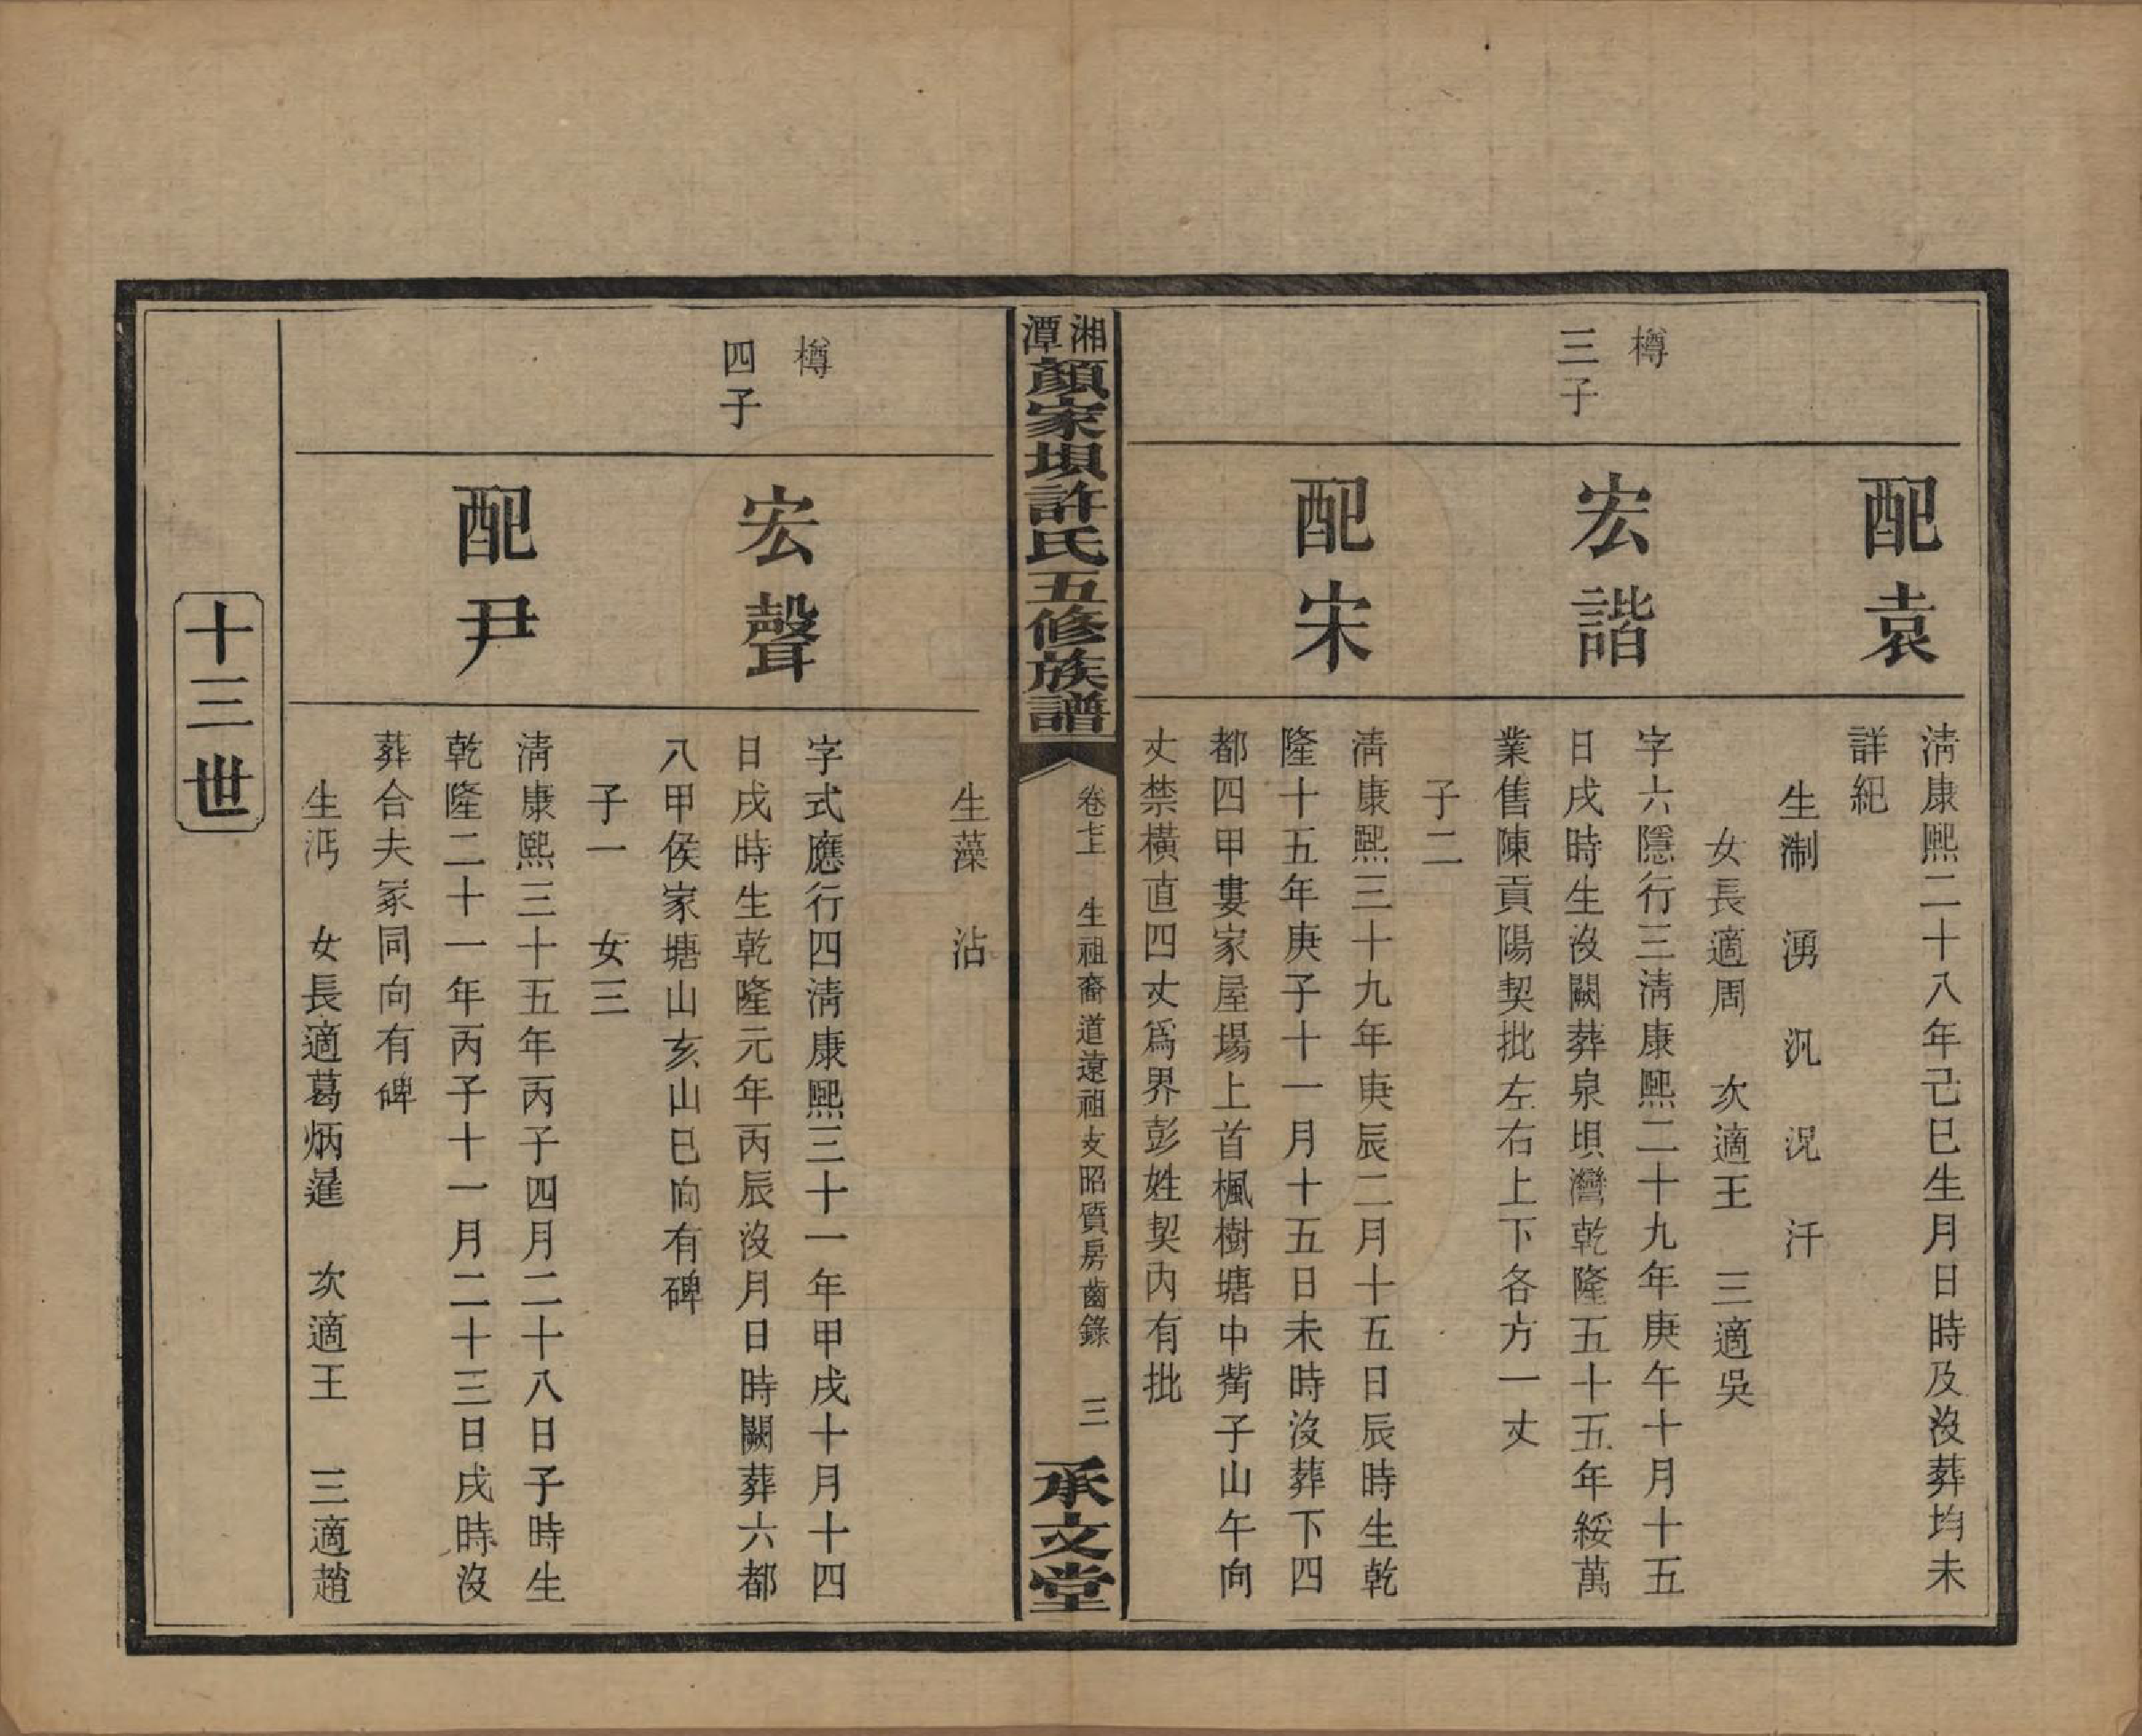 配袁
淸康熙二十八年己巳生月日時及沒葬均未
詳紀
生淛　湧　汎　況　汗
女長適周　次適王　三適吳
樽
三子
宏諧
字六隱行三淸康熙二十九年庚午十月十五
日戌時生沒闕葬泉垻灣乾隆五十五年綏萬
業售陳貢陽契批左右上下各方一丈
子二
配宋
淸康熙三十九年庚辰二月十五日辰時生乾
隆十五年庚子十一月十五日未時沒葬下四
都四甲婁家屋場上首楓樹塘中觜子山午向
丈禁橫直四丈爲界彭姓契內有批
湘潭顏家垻許氏五修族譜
卷　生祖裔道遠祖支昭質房齒錄　三
承文堂
生藻　沾
樽
四子
宏聲
字式應行四淸康熙三十一年甲戌十月十四
日戌時生乾隆元年丙辰沒月日時闕葬六都
八甲侯家塘山亥山巳向有碑
子一　女三
配尹
淸康熙三十五年丙子四月二十八日子時生
乾隆二十一年丙子十一月二十三日戌時沒
葬合夫冢同向有碑
生沔　女長適葛炳暹　次適王　三適趙
十三世